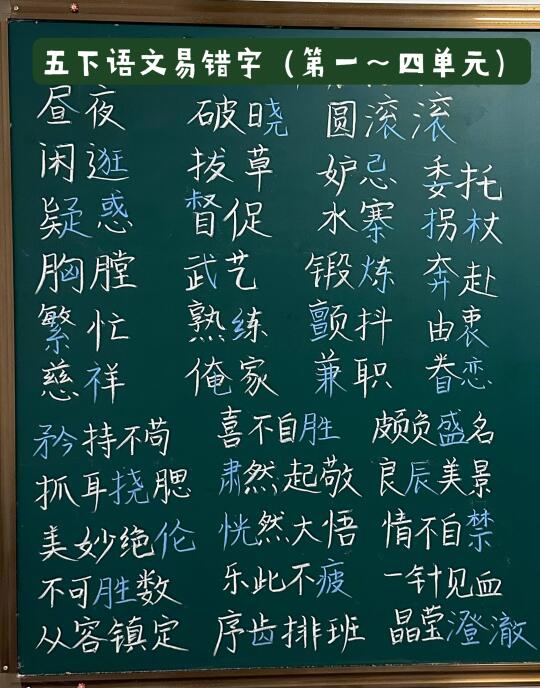 五下语文易错字（第一～四单元）
昼夜 破晓 圆滚滚
闲逛 拔草 妒忌 委托
疑惑 督促 水寨 拐杖
胸膛 武艺 锻炼 奔赴
繁忙 熟练 颤抖 由衷
慈祥 俺家 兼职 眷恋
矜持不苟 喜不自胜 颇负盛名
抓耳挠腮 肃然起敬 良辰美景
美妙绝伦 恍然大悟 情不自禁
不可胜数 乐此不疲 一针见血
从容镇定 序齿排班 晶莹澄澈